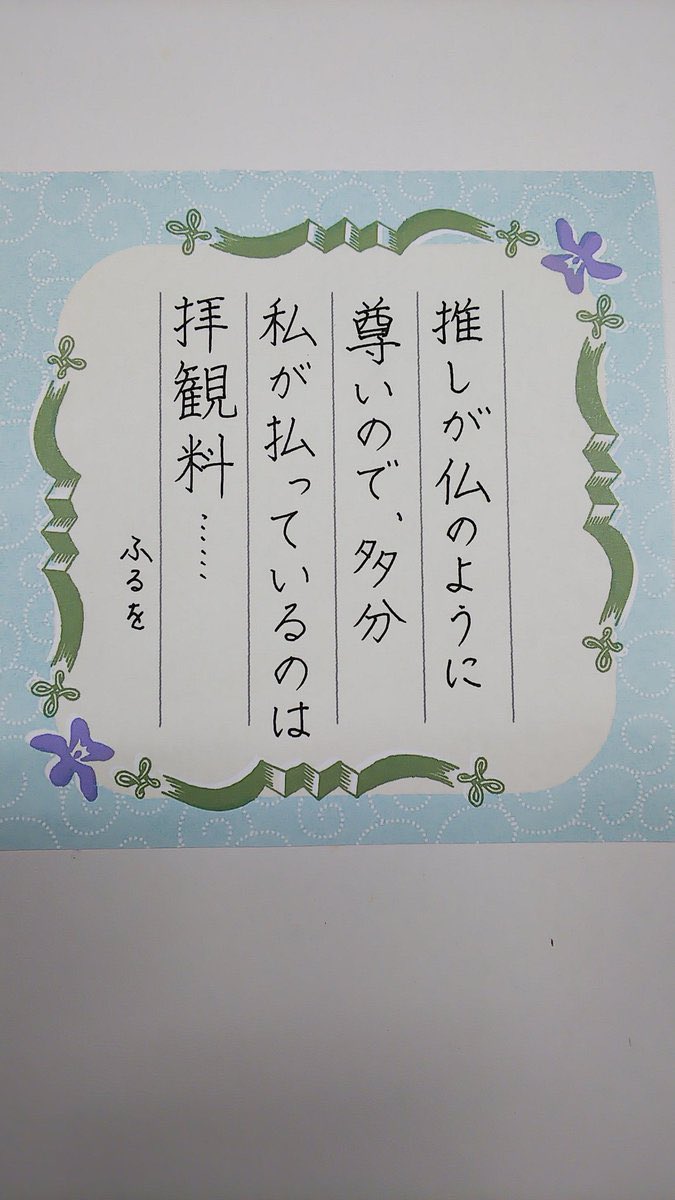 推しが仏のように
尊いので、多分
私が払っているのは
拝観料……
ふるを